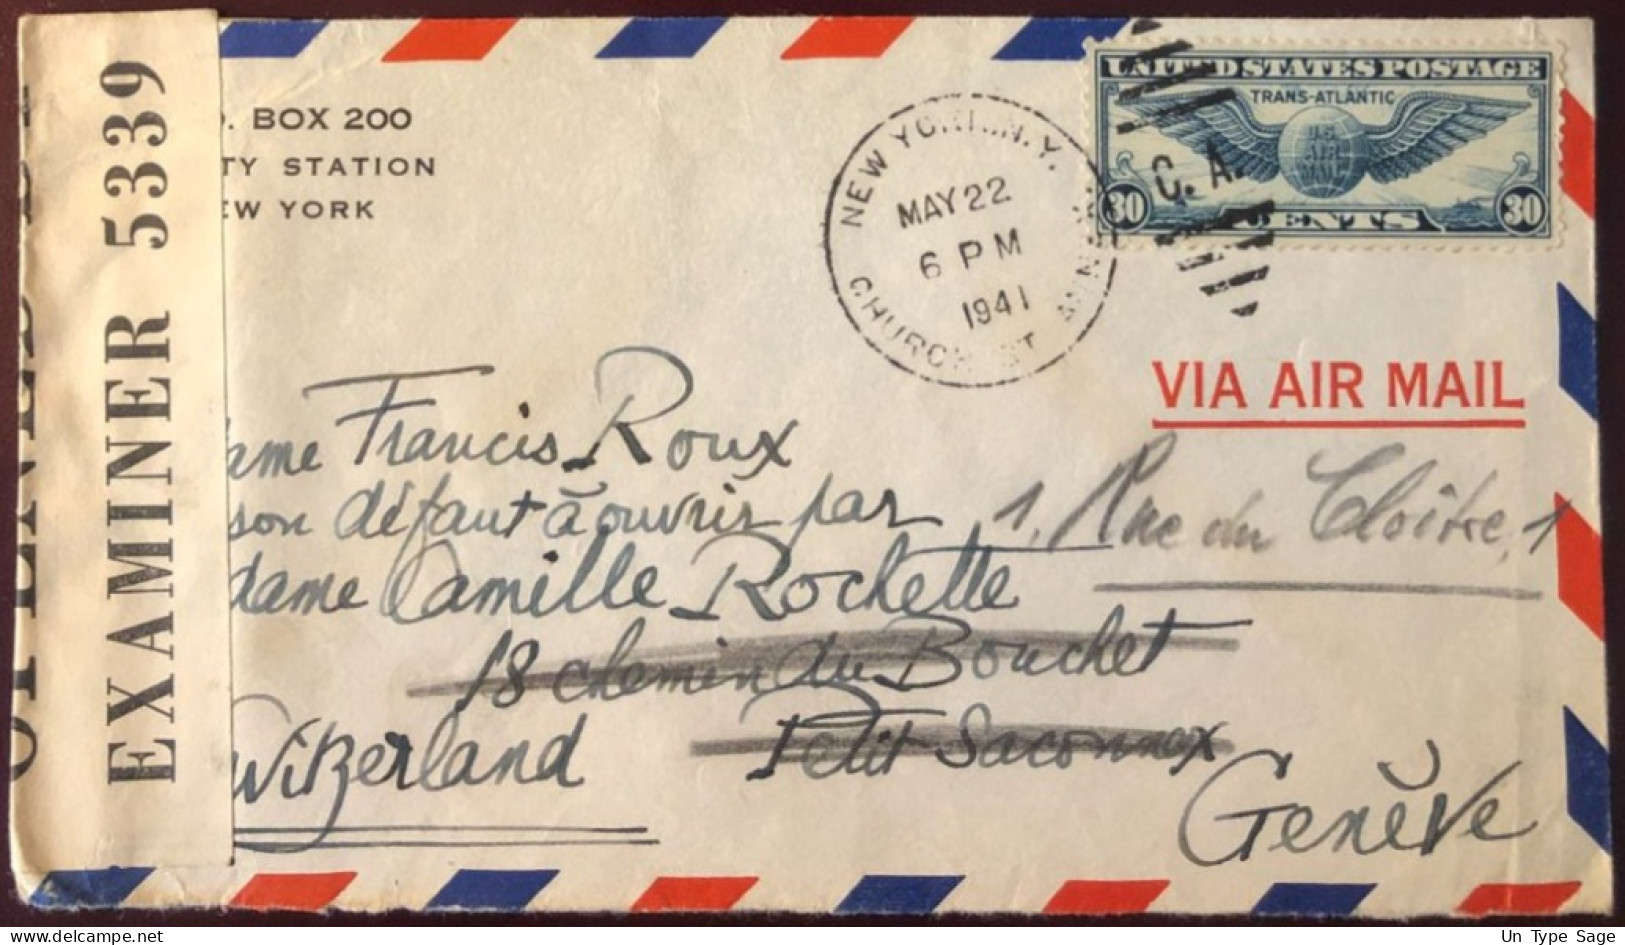 OPENED BY
EXAMINER 5339
O. BOX 200
TY STATION
EW YORK
NEW YORK, N.Y.
MAY 22
6 PM
1941
CHURCH ST. ANNEX
C. A.
UNITED STATES POSTAGE
TRANS-ATLANTIC
U.S.
AIR
MAIL
30 CENTS 30
VIA AIR MAIL
ame Francis Roux
son défaut à ouvrir par
dame Camille Rochette
1, Rue du Cloître, 1
18 chemin du Bouchet
Petit Saconnex
witzerland
Genève
Un Type Sage